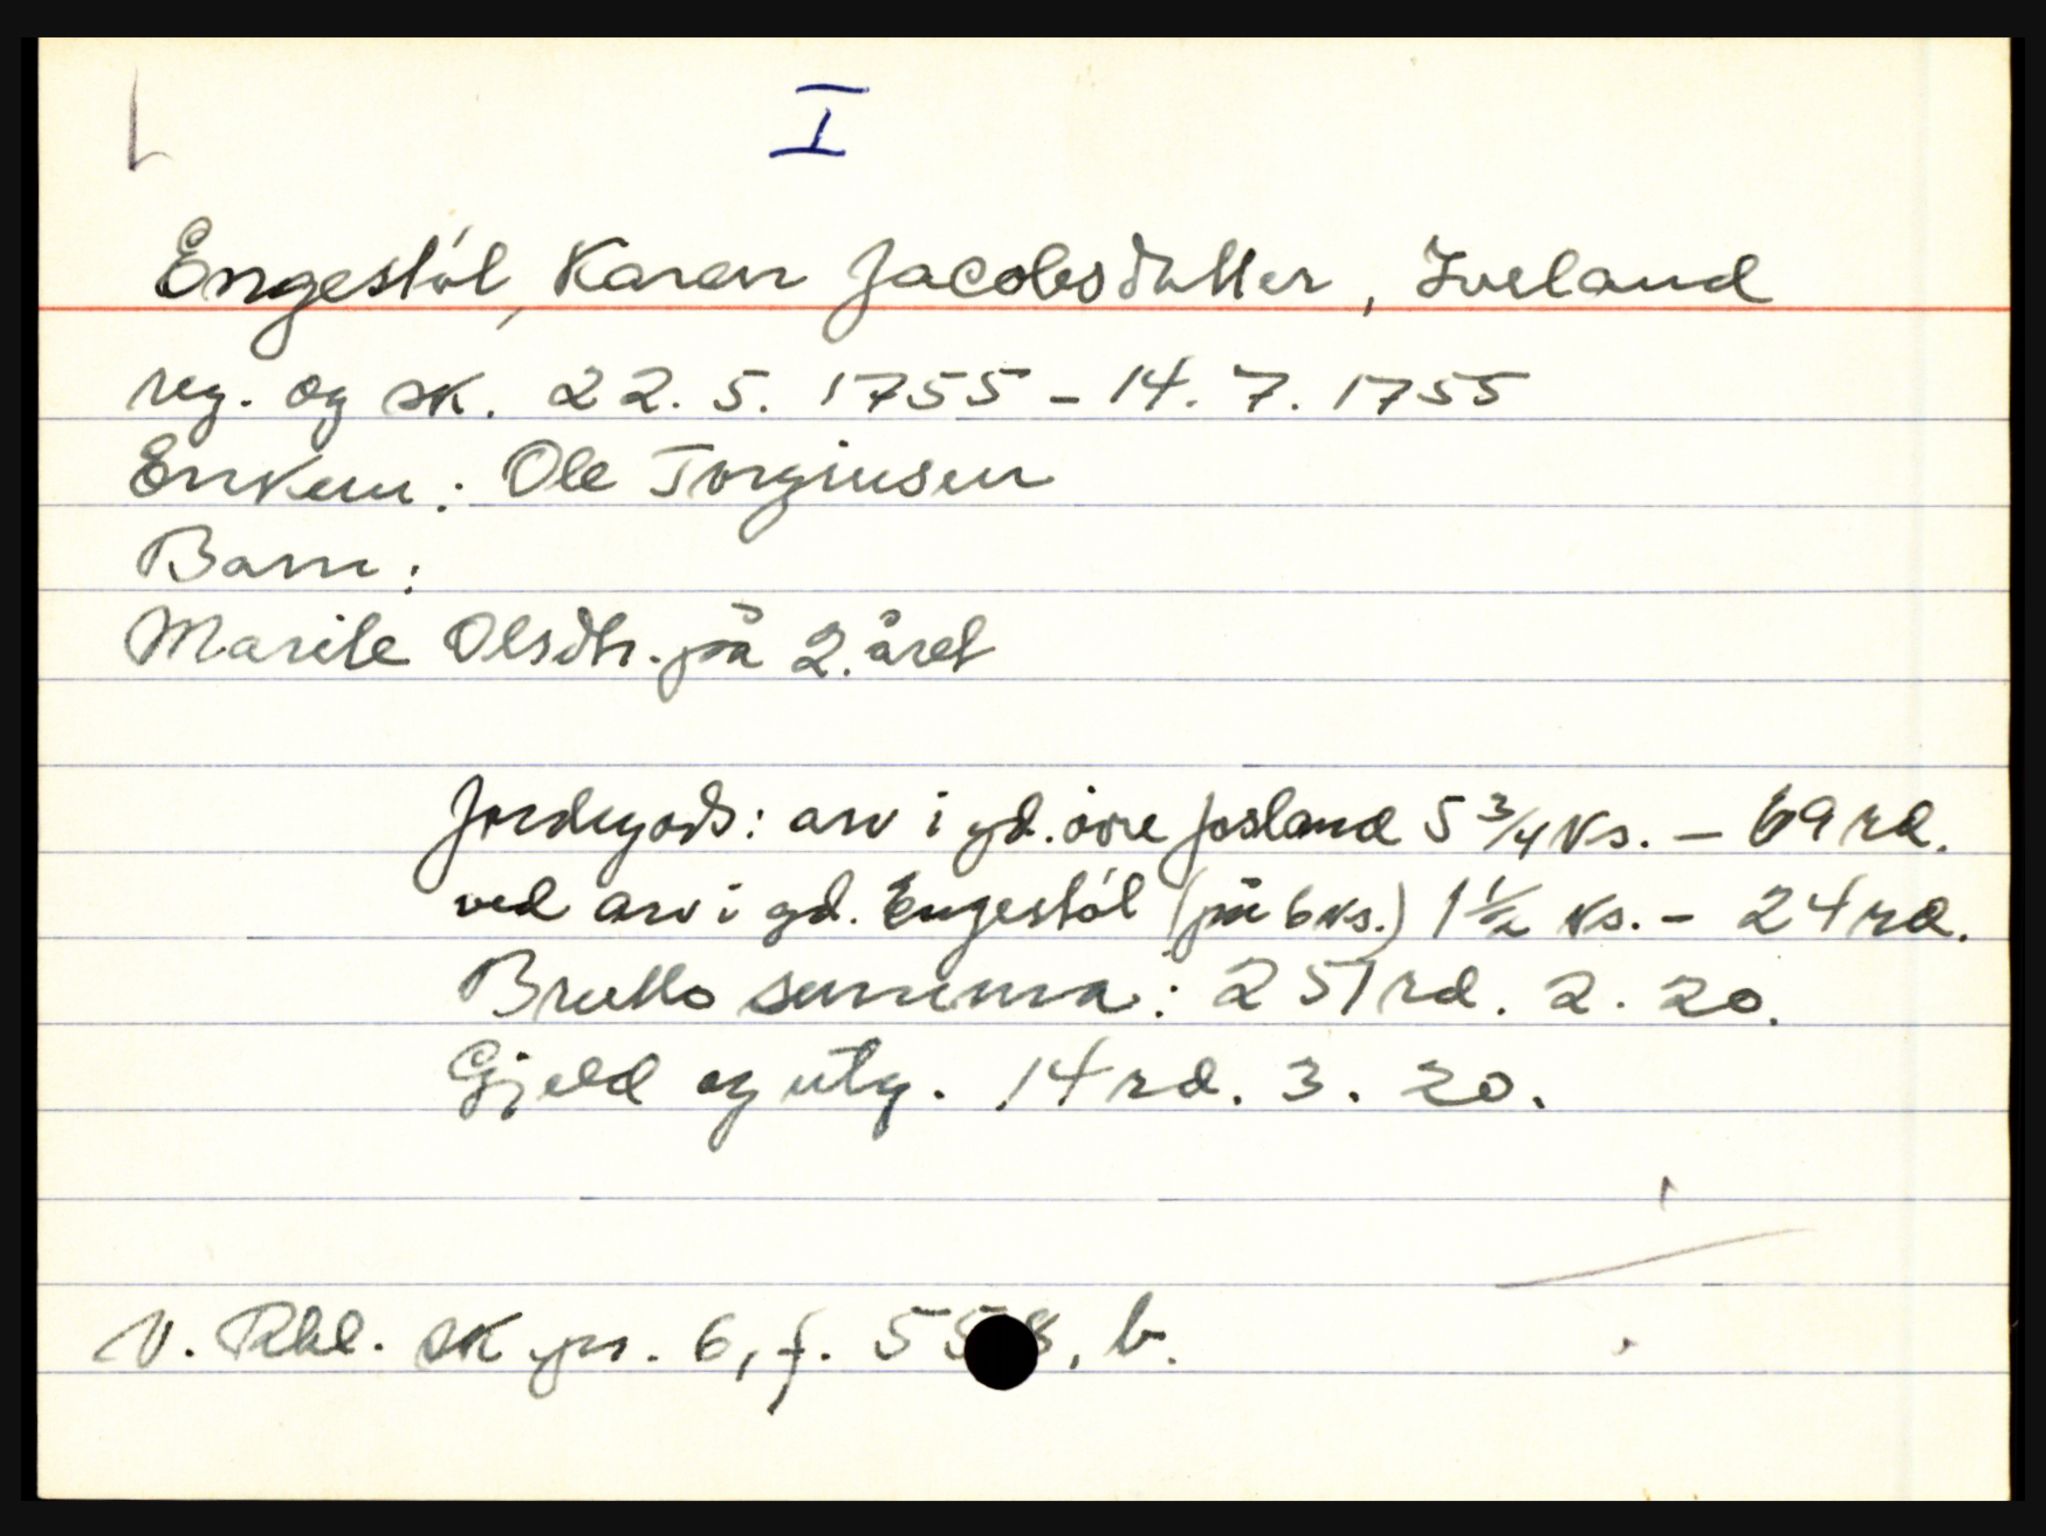 I
Engestøl, Karen Jacobsdatter, Iveland
reg. og sk. 22. 5. 1755 - 14. 7. 1755
Enkem: Ole Torgiusen
Barn:
Marite Olsdtr. på 2. året
Jordegods: arv i gd. øvre Josland 5 3/4 ks. - 69 rd.
ved arv i gd. Engestøl (på 6 ks.) 1 1/2 ks. - 24 rd.
Brutto summa: 251 rd. 2. 20.
Gjeld og utg. 14 rd. 3. 20.
N. Rbl. sk. pr. 6, f. 558, b.